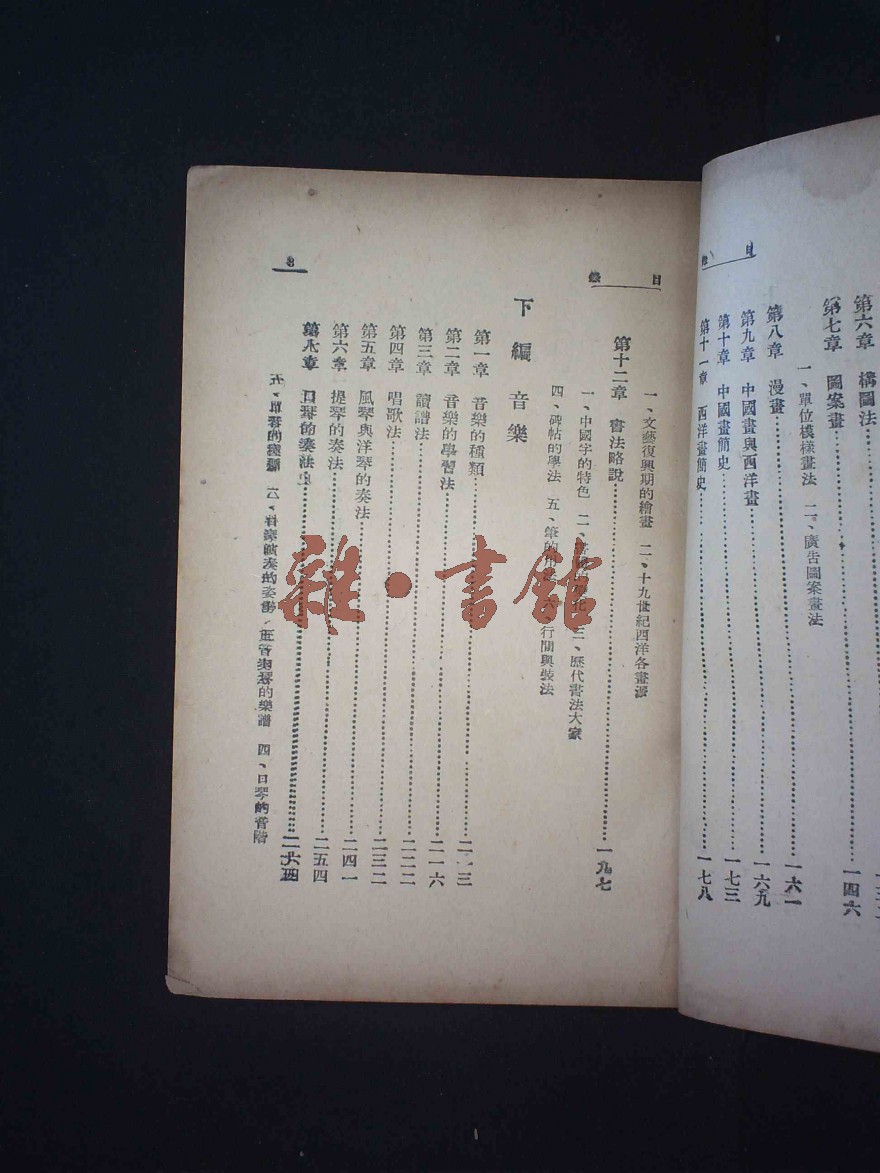 目
第六章 構圖法
一四六
第七章 圖案畫
一、單位模樣畫法 二、廣告圖案畫法
第八章 漫畫
一六一
第九章 中國畫與西洋畫
一六九
第十章 中國畫簡史
一七三
第十一章 西洋畫簡史
一七八
目 錄
一、文藝復興期的繪畫 二、十九世紀西洋各畫派
第十二章 書法略說
一九七
一、中國字的特色 二、 三、歷代書法大家
四、碑帖的學法 五、筆的用法 六、行間與裝法
下編 音樂
第一章 音樂的種類
二一三
第二章 音樂的學習法
二一六
第三章 讀譜法
二二二
第四章 唱歌法
二三二
第五章 風琴與洋琴的奏法
二四一
第六章 提琴的奏法
二五四
第七章 口琴的奏法
二六四
口琴的種類 二、口琴演奏的姿勢 三、口琴的樂譜 四、口琴的音階
8
雜·書館